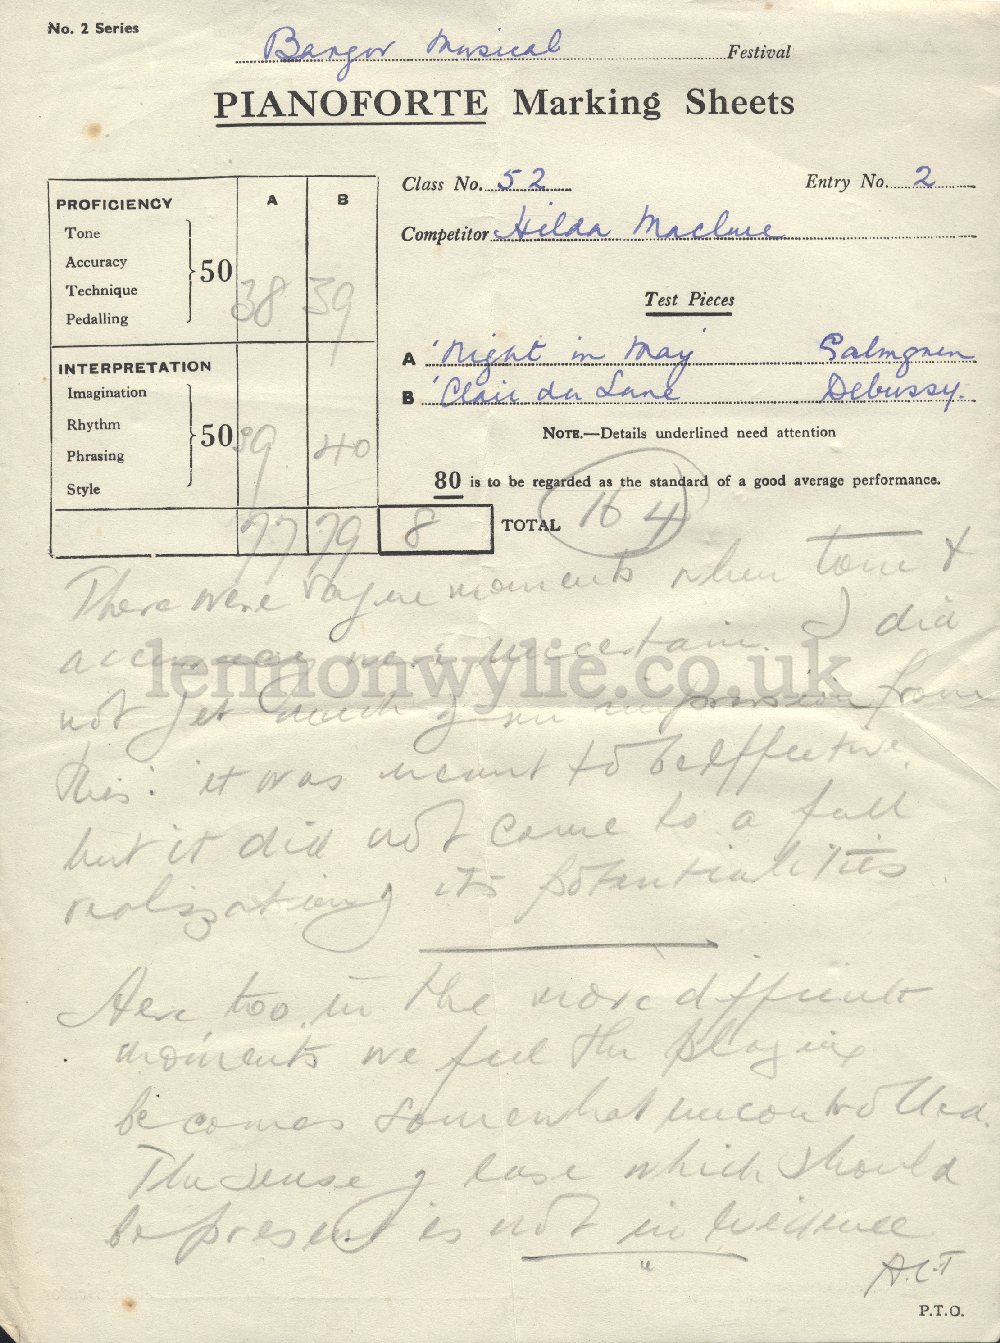 No. 2 Series
Bangor Musical Festival
PIANOFORTE Marking Sheets
Class No. 52 Entry No. 2
Competitor Hilda Maclure
PROFICIENCY A B
Tone
Accuracy
Technique
Pedalling
50 38 39
INTERPRETATION
Imagination
Rhythm
Phrasing
Style
50 39 40
77 79 8 TOTAL 164
Test Pieces
A 'Night in May' Palmgren
B 'Clair du Lune Debussy.
NOTE.—Details underlined need attention
80 is to be regarded as the standard of a good average performance.
There were vague moments when tone &
accuracy were uncertain. I did
not get much of an impression from
this: it was meant to be effective,
but it did not come to a full
realization of its potentialities
Here, too, in the more difficult
moments we feel the playing
becomes somewhat uncontrolled.
The sense of ease which should
be present is not in evidence
A.C.T
P.T.O.
lennonwylie.co.uk